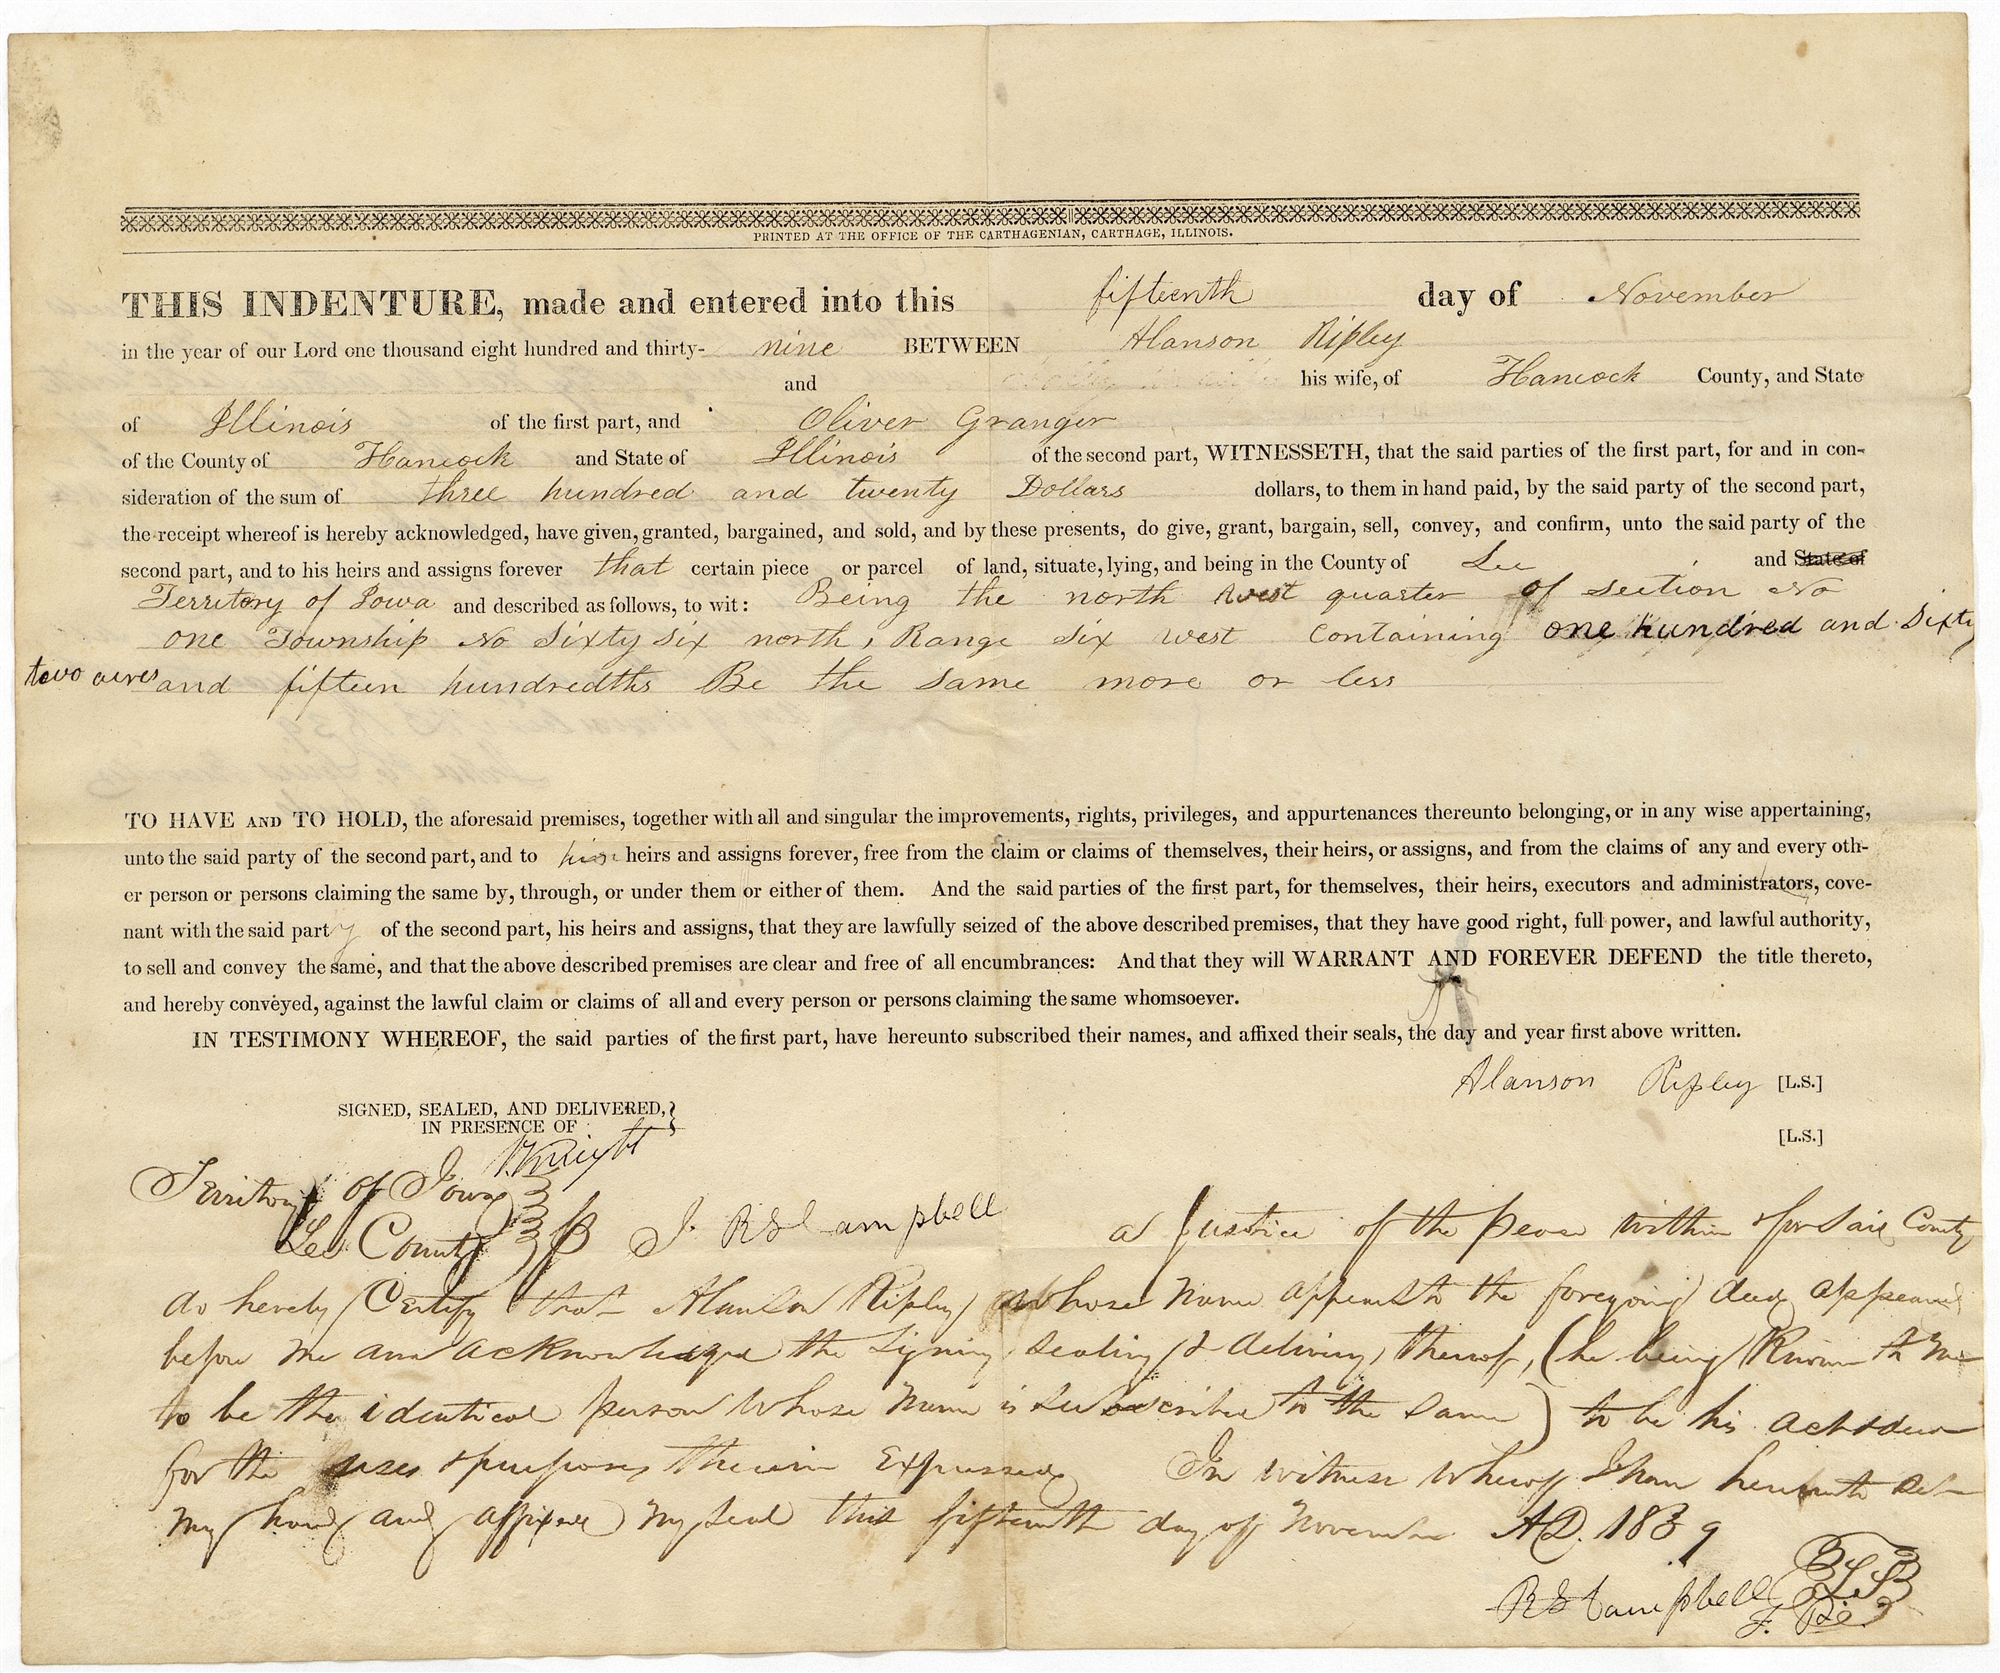 PRINTED AT THE OFFICE OF THE CARTHAGENIAN, CARTHAGE, ILLINOIS.
THIS INDENTURE, made and entered into this fifteenth day of November
in the year of our Lord one thousand eight hundred and thirty- nine BETWEEN Alanson Ripley
and his wife, of Hancock County, and State
of Illinois of the first part, and Oliver Granger
of the County of Hancock and State of Illinois of the second part, WITNESSETH, that the said parties of the first part, for and in con-
sideration of the sum of three hundred and twenty Dollars dollars, to them in hand paid, by the said party of the second part,
the receipt whereof is hereby acknowledged, have given, granted, bargained, and sold, and by these presents, do give, grant, bargain, sell, convey, and confirm, unto the said party of the
second part, and to his heirs and assigns forever that certain piece or parcel of land, situate, lying, and being in the County of Lee and State of
Territory of Iowa and described as follows, to wit: Being the north west quarter of section No
one Township No Sixty Six north, Range Six west Containing one hundred and Sixty
two acres and fifteen hundredths Be the Same more or less
TO HAVE AND TO HOLD, the aforesaid premises, together with all and singular the improvements, rights, privileges, and appurtenances thereunto belonging, or in any wise appertaining,
unto the said party of the second part, and to his heirs and assigns forever, free from the claim or claims of themselves, their heirs, or assigns, and from the claims of any and every oth-
er person or persons claiming the same by, through, or under them or either of them. And the said parties of the first part, for themselves, their heirs, executors and administrators, cove-
nant with the said party of the second part, his heirs and assigns, that they are lawfully seized of the above described premises, that they have good right, full power, and lawful authority,
to sell and convey the same, and that the above described premises are clear and free of all encumbrances: And that they will WARRANT AND FOREVER DEFEND the title thereto,
and hereby conveyed, against the lawful claim or claims of all and every person or persons claiming the same whomsoever.
IN TESTIMONY WHEREOF, the said parties of the first part, have hereunto subscribed their names, and affixed their seals, the day and year first above written.
Alanson Ripley [L.S.]
SIGNED, SEALED, AND DELIVERED,
IN PRESENCE OF
[L.S.]
Knight
Territory of Iowa
Lee County I R S Campbell a Justice of the peace within & for Said County
do hereby Certify that Alanson Ripley whose name appears to the foregoing deed appeared
before me and acknowledged the signing, sealing & delivery thereof, (he being Known to me
to be the identical person whose name is subscribed to the same) to be his act & deed
for the uses & purposes therein Expressed In witness whereof I have hereunto set
my hand and affixed my seal this fifteenth day of November AD. 1839
R S Campbell
LS